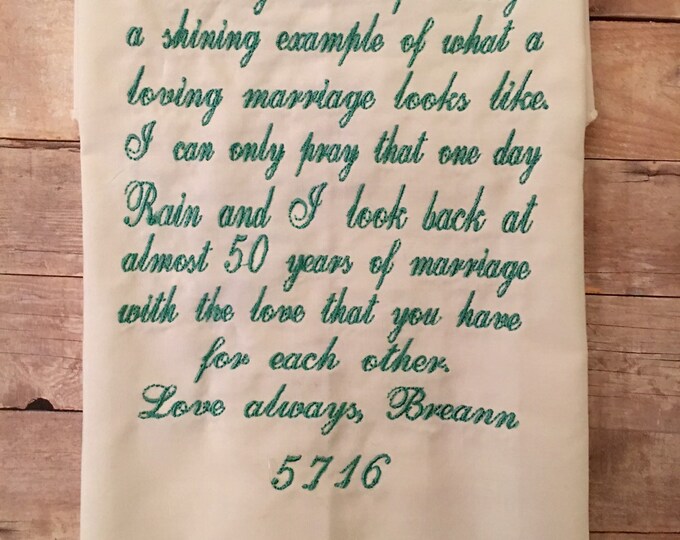 a shining example of what a
loving marriage looks like.
I can only pray that one day
Rain and I look back at
almost 50 years of marriage
with the love that you have
for each other.
Love always, Breann
5716